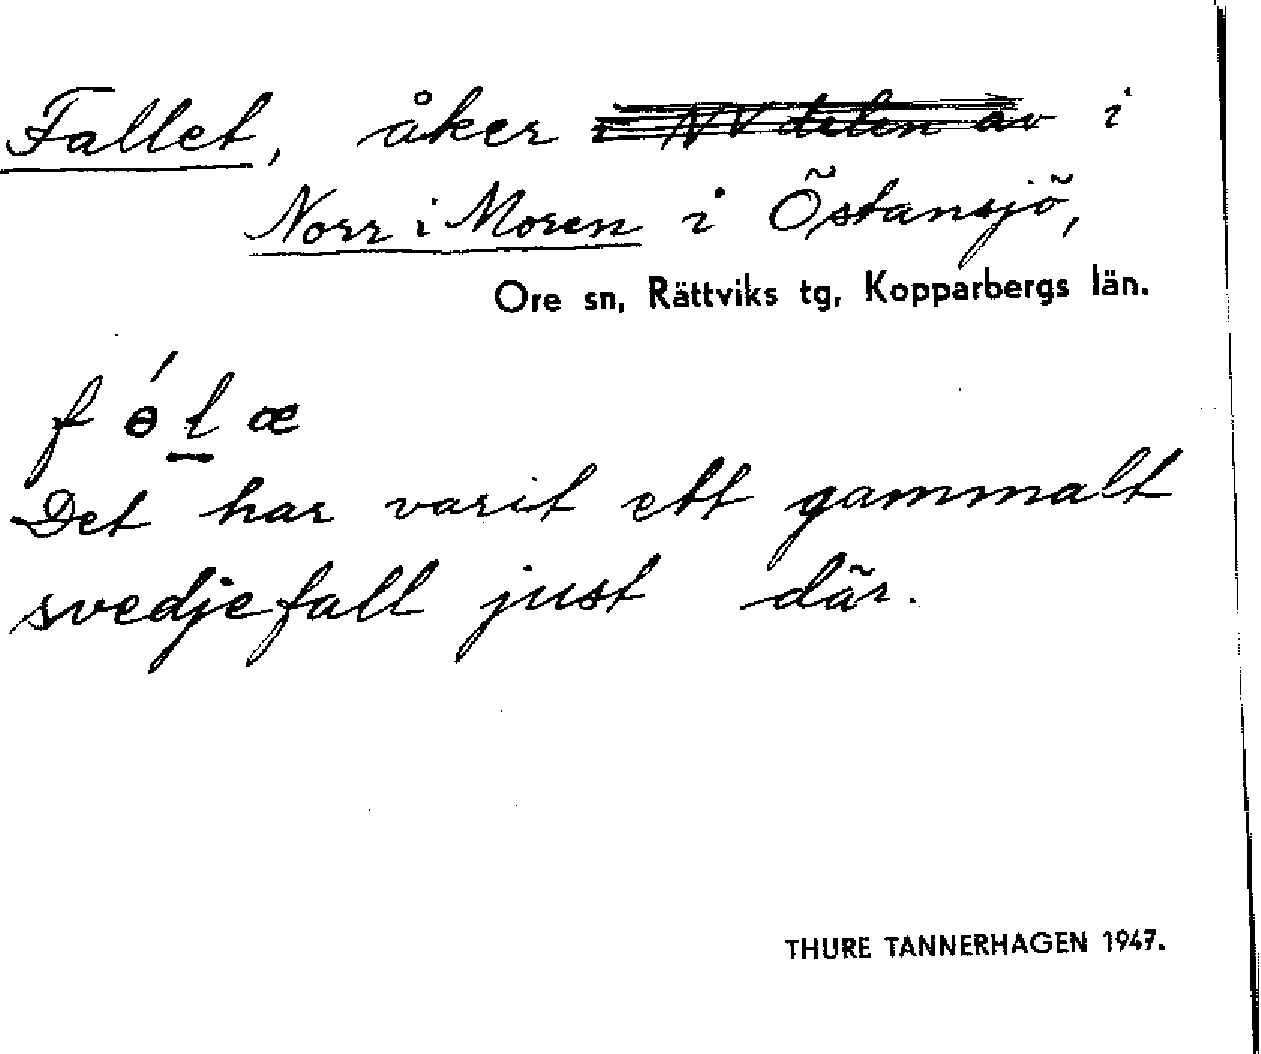 Fallet, åker i NV delen av i
Norr i Moren i Östansjö,
Ore sn, Rättviks tg, Kopparbergs län.
fɵ́l̲æ
Det har varit ett gammalt
svedjefall just där.
THURE TANNERHAGEN 1947.